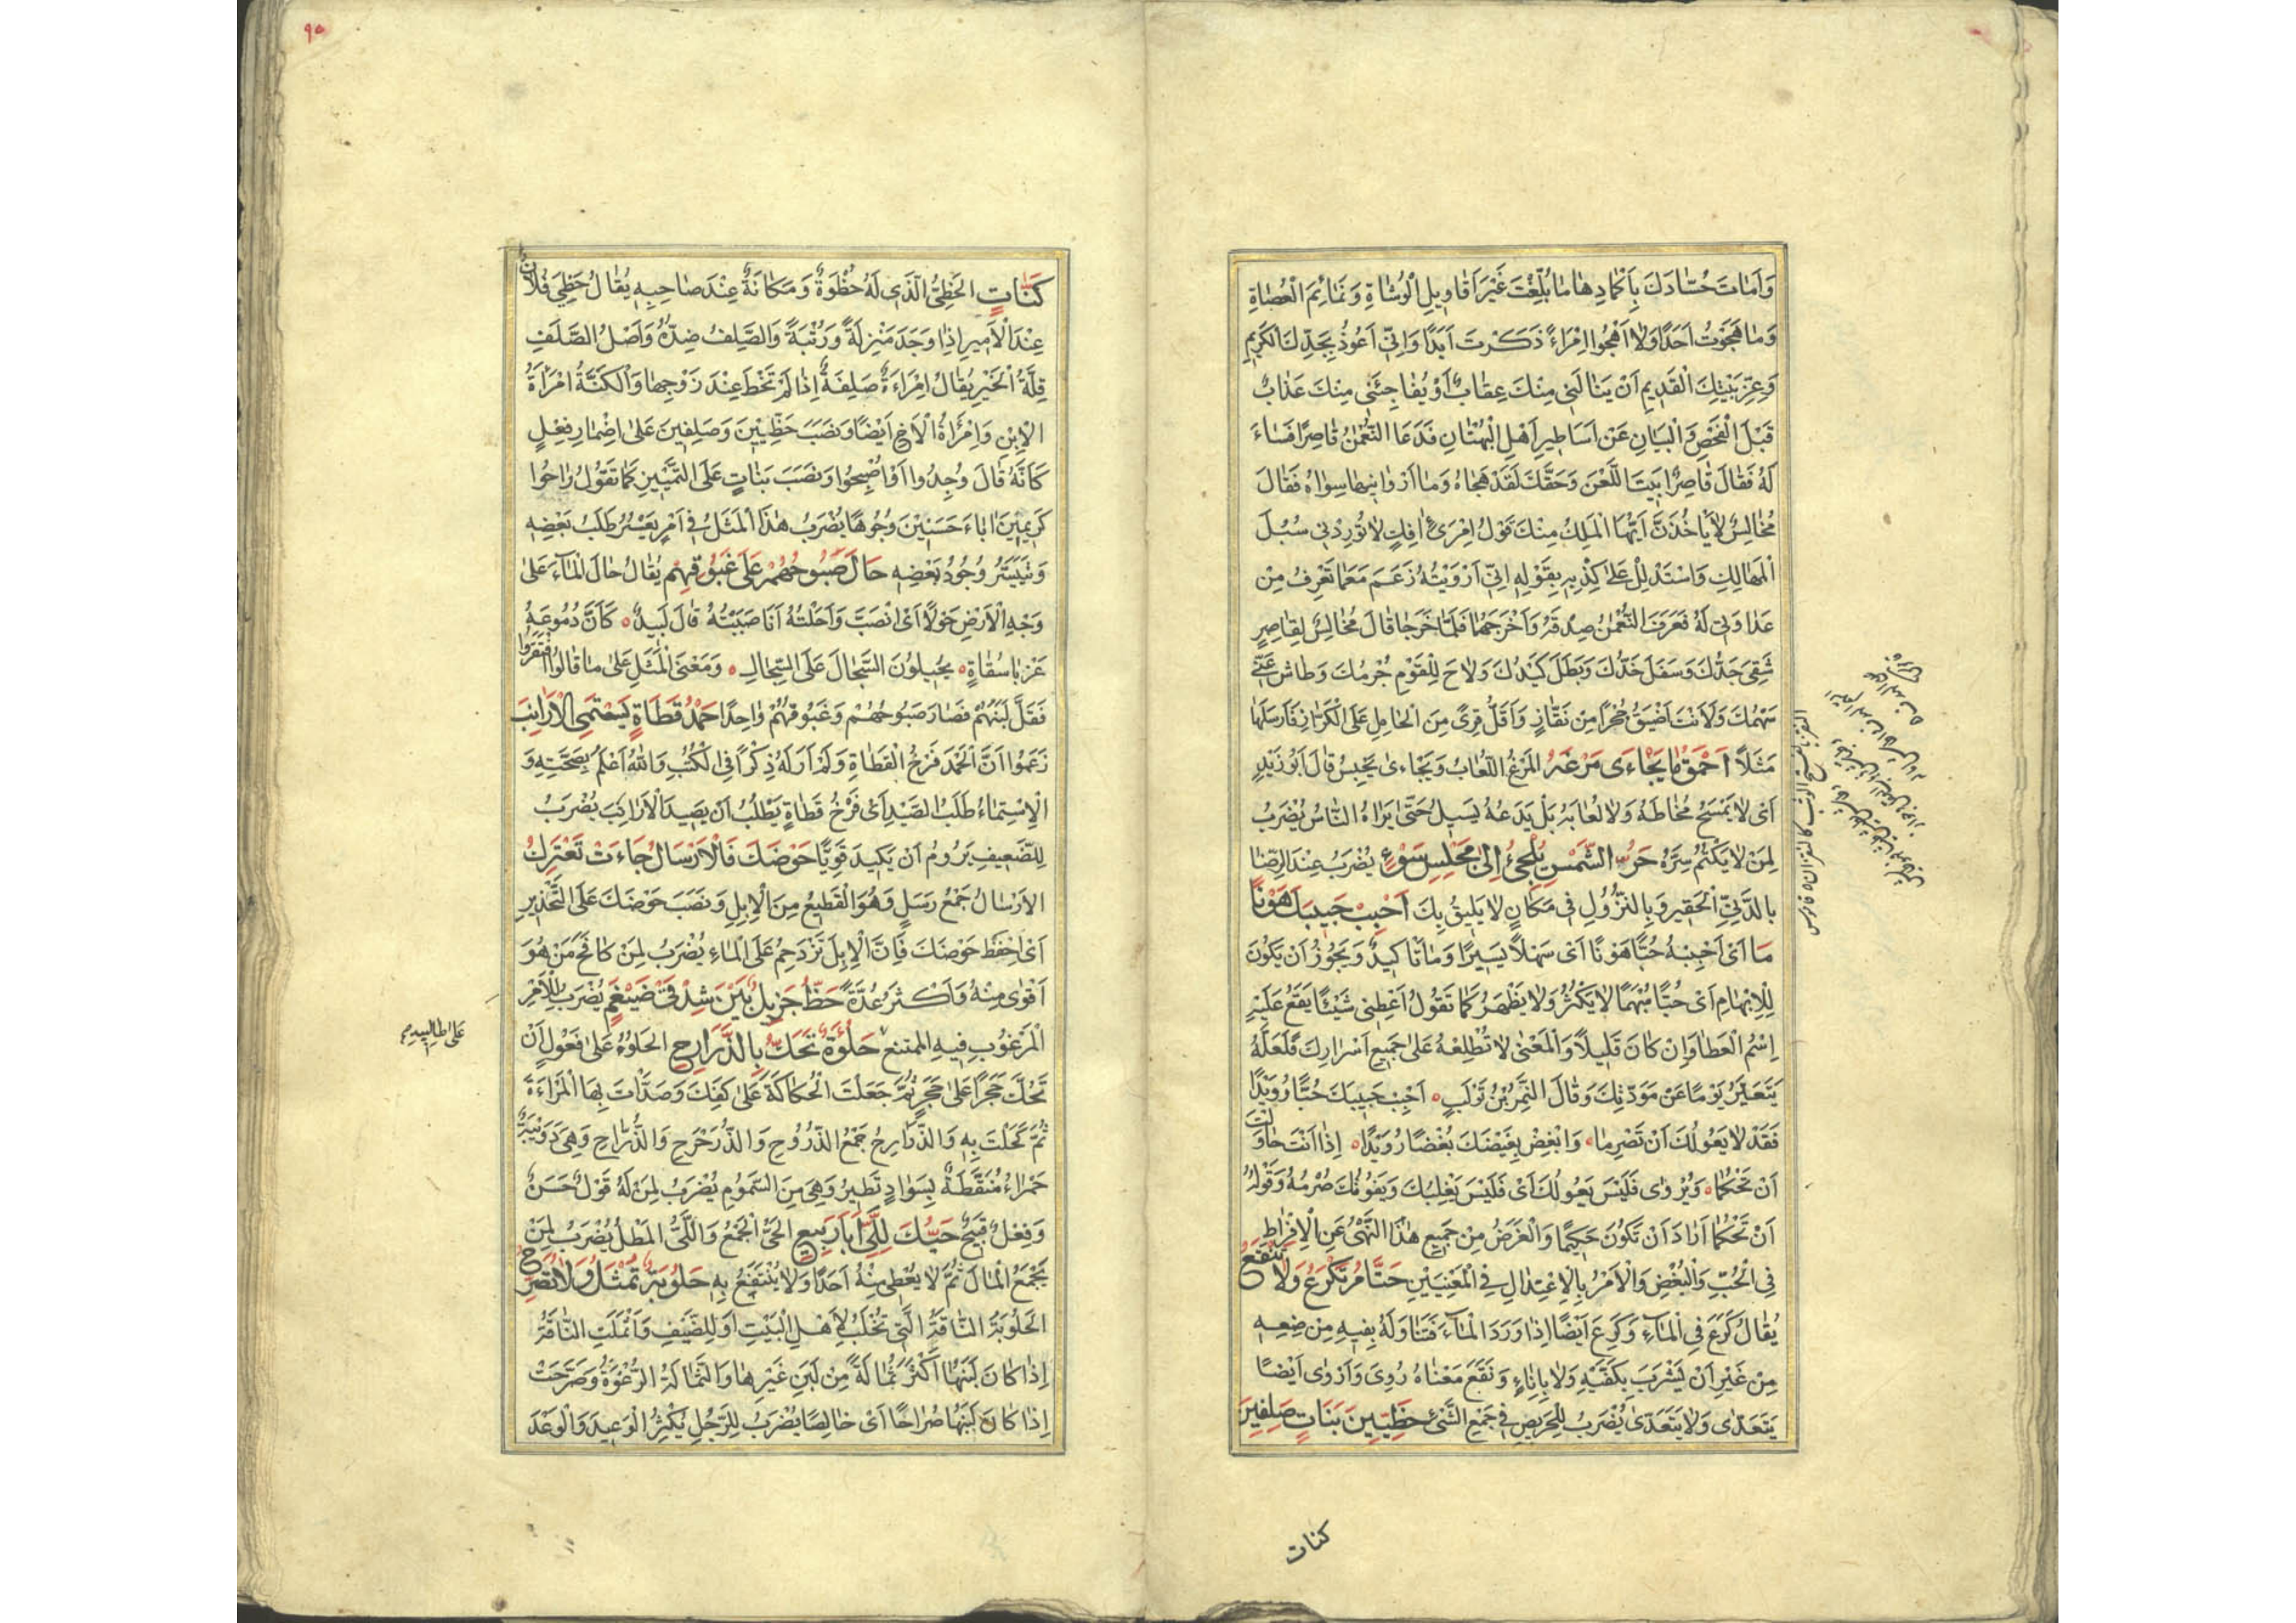 وَاَمَاتَ حُسَّادَكَ بِاَكْمَادِهَا مَا بُلِّغْتَ غَيْرَ اَقَاوِيلِ الْوُشَاةِ وَنَمَائِمَ الْعُصَاةِ
وَمَا هَجَوْتُ اَحَدًا وَلَا اَهْجُوا اِمْرَاءً ذَكَرْتَ اَبَدًا وَاِنِّي اَعُوذُ بِجَدِّكَ الكَرِيمِ
وَعِزِّ بَيْتِكَ الْقَدِيمِ اَنْ يَنَالَنِي مِنْكَ عِقَابٌ اَوْ يُفَاجِئَنِي مِنْكَ عَذَابٌ
قَبْلَ الْفَحْصِ وَالْبَيَانِ عَنْ اَسَاطِيرِ اَهْلِ الْبُهْتَانِ فَدَعَا النُّعْمٰنُ قَاصِرًا فَسَاءَ
لَهُ فَقَالَ قَاصِرٌ اَبَيْتَ اللَّعْنَ وَحَقِّكَ لَقَدْ هَجَاهُ وَمَا اَرْوَانِيهَا سِوَاهُ فَقَالَ
مُخَالِسٌ لَا يَاخُذَنَّ اَيُّهَا الْمَلِكُ مِنْكَ قَوْلُ اِمْرَئٍ اٰفِكٍ لَا تُورِدْنِي سُبُلَ
الْمَهَالِكِ وَاسْتَدْلِلْ عَلَى كِذْبِهِ بِقَوْلِهِ اِنِّي اَرْوَيْتُهُ زَعَمَ مَعَ مَا تَعْرِفُ مِنْ
عَدَاوَتِي لَهُ فَعَرَفَ النُّعْمٰنُ صِدْقَهُ وَاَخْرَجَهُمَا فَلَمَّا خَرَجَا قَالَ مُخَالِسٌ لِقَاصِرٍ
شَقِيَ جَدُّكَ وَسَفَلَ خَدُّكَ وَبَطَلَ كَيْدُكَ وَلَاحَ لِلْقَوْمِ جُرْمُكَ وَطَاشَ عَنِّي
سَهْمُكَ وَلَاَنْتَ اَضْيَقُ جُحْرًا مِنْ نَقَّازٍ وَاَقَلُّ قِرًى مِنَ الْحَامِلِ عَلَى الْكَرَّازِ فَاَرْسَلَهَا
مَثَلًا اَحْمَقُ مَا يَجْاءَى مَرْغَهُ المَرْغُ اللُّعَابُ وَيَجْاءى يَحْبِسُ قَالَ اَبُو زَيْدٍ
اَىْ لَا يَمْسَحُ مُخَاطَهُ وَلَا لُعَابَهُ بَلْ يَدَعُهُ يَسِيلُ حَتّٰى يَرَاهُ النَّاسُ يُضْرَبُ
لِمَنْ لَا يَكْتُمُ سِرَّهُ حَرُّ الشَّمْسِ يُلْجِئُ اِلٰى مَجْلِسِ سَوْءٍ يُضْرَبُ عِنْدَ الرِّضَا
بِالدَّنِيِّ الْحَقِيرِ وَبِالنُّزُولِ فِي مَكَانٍ لَا يَلِيقُ بِكَ اَحْبِبْ حَبِيبَكَ هَوْنًا
مَا اَىْ اَحْبِبْهُ حُبًّا هَوْنًا اَىْ سَهْلًا يَسِيرًا وَمَا تَاكِيدٌ وَيَجُوزُ اَنْ يَكُونَ
لِلْاِبْهَامِ اَىْ حُبًّا مُبْهَمًا لَا يَكْثُرُ وَلَا يَظْهَرُ كَمَا تَقُولُ اَعْطِنِي شَيْئًا يَقَعُ عَلَيْهِ
اِسْمُ الْعَطَا وَاِنْ كَانَ قَلِيلًا وَالْمَعْنٰى لَا تُطْلِعْهُ عَلَى جَمِيعِ اَسْرَارِكَ فَلَعَلَّهُ
يَتَغَيَّرُ يَوْمًا عَنْ مَوَدَّتِكَ وَقَالَ النَّمِرُ بْنُ تَوْلَبٍ ٥ اَحْبِبْ حَبِيبَكَ حُبًّا رُوَيْدًا
فَقَدْ لَا يَعُولُكَ اَنْ تَصْرِمَا ٥ وَابْغِضْ بِغِيضَكَ بُغْضًا رُوَيْدًا ٥ اِذَا اَنْتَ حَاوَلْتَ
اَنْ تَحْكُمَا ٥ وَيُرْوٰى فَلَيْسَ يَعُولُكَ اَىْ فَلَيْسَ يَغْلِبُكَ وَيَفُوتُكَ صُرْمُهُ وَقَوْلُهُ
اَنْ تَحْكُمَا اَرَادَ اَنْ تَكُونَ حَكِيمًا وَالْغَرَضُ مِنْ جَمِيعِ هٰذَا النَّهْىُ عَنِ الْاِفْرَاطِ
فِي الْحُبِّ وَالْبُغْضِ وَالْاَمْرُ بِالْاِعْتِدَالِ فِي الْمَعْنِيَيْنِ حَتَّامَ تَكْرَعُ وَلَا تَنْقَعُ
يُقَالُ كَرَعَ فِي الْمَاءِ وَكَرِعَ اَيْضًا اِذَا وَرَدَ الْمَاءَ فَتَنَاوَلَهُ بِفِيهِ مِنْ مَوْضِعِهِ
مِنْ غَيْرِ اَنْ يَشْرَبَ بِكَفَّيْهِ وَلَا بِاِنَاءٍ وَنَقَعَ مَعْنَاهُ رُوِيَ وَاَرْوٰى اَيْضًا
يَتَعَدّٰى وَلَا يَتَعَدّٰى يُضْرَبُ لِلْحَرِيصِ فِي جَمْعِ الشَّئِ حَظِيِّينَ بَنَاتٍ صَلِفِينَ
كنات
٩٥
كَنَّاتٍ الحَظِيُّ الَّذِي لَهُ حُظْوَةٌ وَمَكَانَةٌ عِنْدَ صَاحِبِهِ يُقَالُ حَظِيَ فُلَانٌ
عِنْدَ الْاَمِيرِ اِذَا وَجَدَ مَنْزِلَةً وَرُتْبَةً وَالصَّلِفُ ضِدُّهُ وَاَصْلُ الصَّلَفِ
قِلَّةُ الْخَيْرِ يُقَالُ اِمْرَاءَةٌ صَلِفَةٌ اِذَا لَمْ تَحْظَ عِنْدَ زَوْجِهَا وَالْكَنَّةُ امْرَاَةُ
الْاِبْنِ وَاِمْرَأَةُ الْاَخِ اَيْضًا وَنَصَبَ حَظِيِّينَ وَصَلِفِينَ عَلَى اِضْمَارِ فِعْلٍ
كَاَنَّهُ قَالَ وُجِدُوا اَوْ اَصْبَحُوا وَنَصَبَ بَنَاتٍ عَلَى التَّمْيِيزِ كَمَا تَقُولُ رَاحُوا
كَرِيمِينَ اٰبَاءَ حَسَنِينَ وُجُوهًا يُضْرَبُ هٰذَا الْمَثَلُ فِي اَمْرٍ يَعْسُرُ طَلَبُ بَعْضِهِ
وَتَيَسَّرَ وُجُودُ بَعْضِهِ حَالَ صَبُوحُهُمْ عَلَى غَبُوقِهِمْ يُقَالُ حَالَ الْمَاءُ عَلَى
وَجْهِ الْاَرْضِ حَوْلًا اَىْ انْصَبَّ وَاَحَلْتُهُ اَنَا صَبَبْتُهُ قَالَ لَبِيدٌ ٥ كَاَنَّ دُمُوعَهُ
غَرْبَا سُقَاةٍ ٥ يُحِيلُونَ السِّجَالَ عَلَى السِّجَالِ ٥ وَمَعْنَى الْمَثَلِ عَلَى مَا قَالُوا افْتَقَرُوا
فَقَلَّ لَبَنُهُمْ فَصَارَ صَبُوحُهُمْ وَغَبُوقُهُمْ وَاحِدًا حَمْدُ قَطَاةٍ يَسْتَمِي الْاَرَانِبَ
زَعَمُوا اَنَّ الْحَمْدَ فَرْخُ الْقَطَاةِ وَلَمْ اَرَ لَهُ ذِكْرًا فِي الْكُتُبِ وَاللهُ اَعْلَمُ بِصِحَّتِهِ وَ
الْاِسْتِمَاءُ طَلَبُ الصَّيْدِ اَىْ فَرْخُ قَطَاةٍ يَطْلُبُ اَنْ يَصِيدَ الْاَرَانِبَ يُضْرَبُ
لِلضَّعِيفِ يَرُومُ اَنْ يَكِيدَ قَوِيًّا حَوْضَكَ فَالْاَرْسَالُ جَاءَتْ تَعْتَرِكُ
الْاَرْسَالُ جَمْعُ رَسَلٍ وَهُوَ الْقَطِيعُ مِنَ الْاِبِلِ وَنَصَبَ حَوْضَكَ عَلَى التَّحْذِيرِ
اَىْ اِحْفَظْ حَوْضَكَ فَاِنَّ الْاِبِلَ تَزْدَحِمُ عَلَى الْمَاءِ يُضْرَبُ لِمَنْ كَافَحَ مَنْ هُوَ
اَقْوٰى مِنْهُ وَاَكْثَرُ عُدَّةً حَظٌّ جَزِيلٌ بَيْنَ شِدْقَيْ ضَيْغَمٍ يُضْرَبُ لِلْاَمْرِ
الْمَرْغُوبِ فِيهِ الممتنع حَلُوءَةٌ تُحَكُّ بِالذَّرَارِيحِ الحَلُوءُ عَلَى فَعُولٍ اَنْ
تَحُكَّ حَجَرًا عَلَى حَجَرٍ ثُمَّ جَعَلْتَ الْحُكَاكَةَ عَلَى كَفِّكَ وَصَدَّاْتَ بِهَا الْمَرْاءَةَ
ثُمَّ كَحَلْتَ بِهِ وَالذَّرَارِيحُ جَمْعُ الذُّرُوحِ وَالذُّرَحْرَحِ وَالذُّرَّاحِ وَهِيَ دُوَيْبَةٌ
حَمْرَاءُ مُنَقَّطَةٌ بِسَوَادٍ تَطِيرُ وَهِيَ مِنَ السَّمُومِ يُضْرَبُ لِمَنْ لَهُ قَوْلٌ حَسَنٌ
وَفِعْلٌ قَبِيحٌ حَيُّكَ لِلَيِّ اَبَا رَبِيعٍ الحَيُّ الْجَمْعُ وَاللَّيُّ المَطْلُ يُضْرَبُ لِمَنْ
يَجْمَعُ الْمَالَ ثُمَّ لَا يُعْطِي مِنْهُ اَحَدًا وَلَا يُنْتَفَعُ بِهِ حَلُوبَةٌ تُثْمِلُ وَلَا تُصَرِّحُ
الْحَلُوبَةُ النَّاقَةُ الَّتِي تُحْلَبُ لِاَهْلِ الْبَيْتِ اَوْ لِلضَّيْفِ وَاَثْمَلَتِ النَّاقَةُ
اِذَا كَانَ لَبَنُهَا اَكْثَرَ ثُمَالَةً مِنْ لَبَنِ غَيْرِهَا وَالثُّمَالَةُ الرُّغْوَةُ وَصَرَّحَتْ
اِذَا كَانَ لَبَنُهَا صُرَاحًا اَىْ خَالِصًا يُضْرَبُ لِلرَّجُلِ يُكْثِرُ الْوَعِيدَ وَالْوَعْدَ